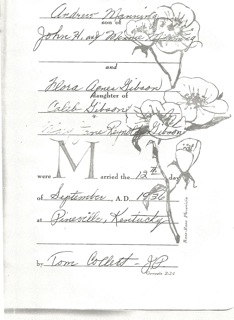 Andrew Manning
son of
John H. and
and
Flora Agnes Gibson
daughter of
Caleb Gibson
Gibson
were Married the 12th day
of September, A.D. 1936
at Pineville, Kentucky
by Tom Collett - JP
Genesis 2:24